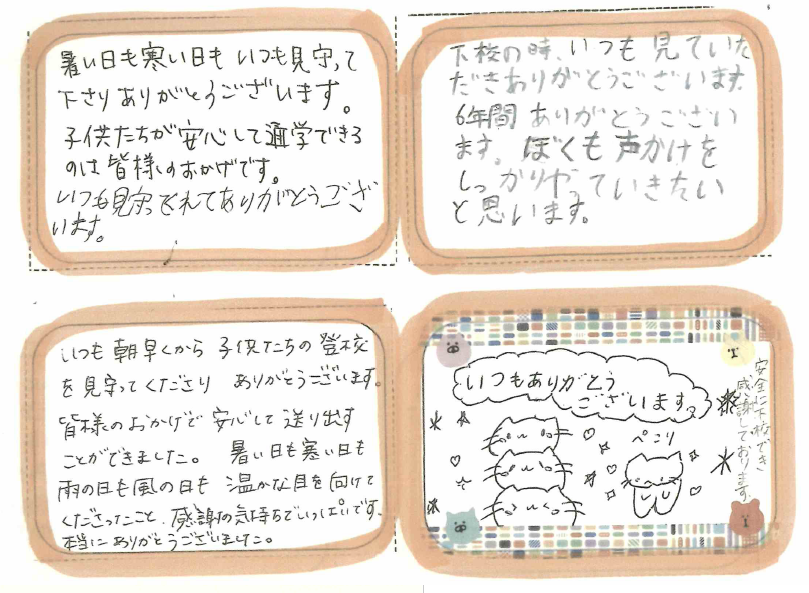 暑い日も寒い日も いつも見守って
下さり ありがとうございます。
子供たちが安心して通学できる
のは皆様のおかげです。
いつも見守ってくれてありがとうござ
います。
下校の時、いつも見ていた
だきありがとうございます。
6年間 ありがとうござい
ます。ぼくも声かけを
しっかりやっていきたい
と思います。
いつも朝早くから 子供たちの登校
を見守ってくださり ありがとうございます。
皆様のおかげで安心して送り出す
ことができました。 暑い日も寒い日も
雨の日も風の日も 温かな目を向けて
くださったこと、感謝の気持ちでいっぱいです。
本当にありがとうございました。
いつもありがとう
ございます。
ぺこり
安全に下校でき
感謝しております。